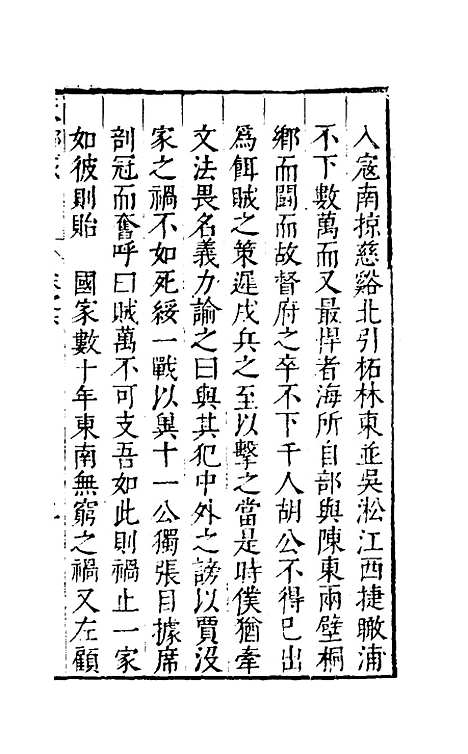 入寇南掠慈谿北引柘林東並吳淞江西捷瞰浦
不下數萬而又最悍者海所自部與陳東兩壁桐
鄉而闘而故督府之卒不下千人胡公不得已出
爲餌賊之策遲戍兵之至以擊之當是時僕猶牽
文法畏名義力論之曰與其犯中外之謗以賈沒
家之禍不如死綏一戰以與十一公獨張目據席
剖冠而奮呼曰賊萬不可支吾如此則禍止一家
如彼則貽　國家數十年東南無窮之禍又左顧